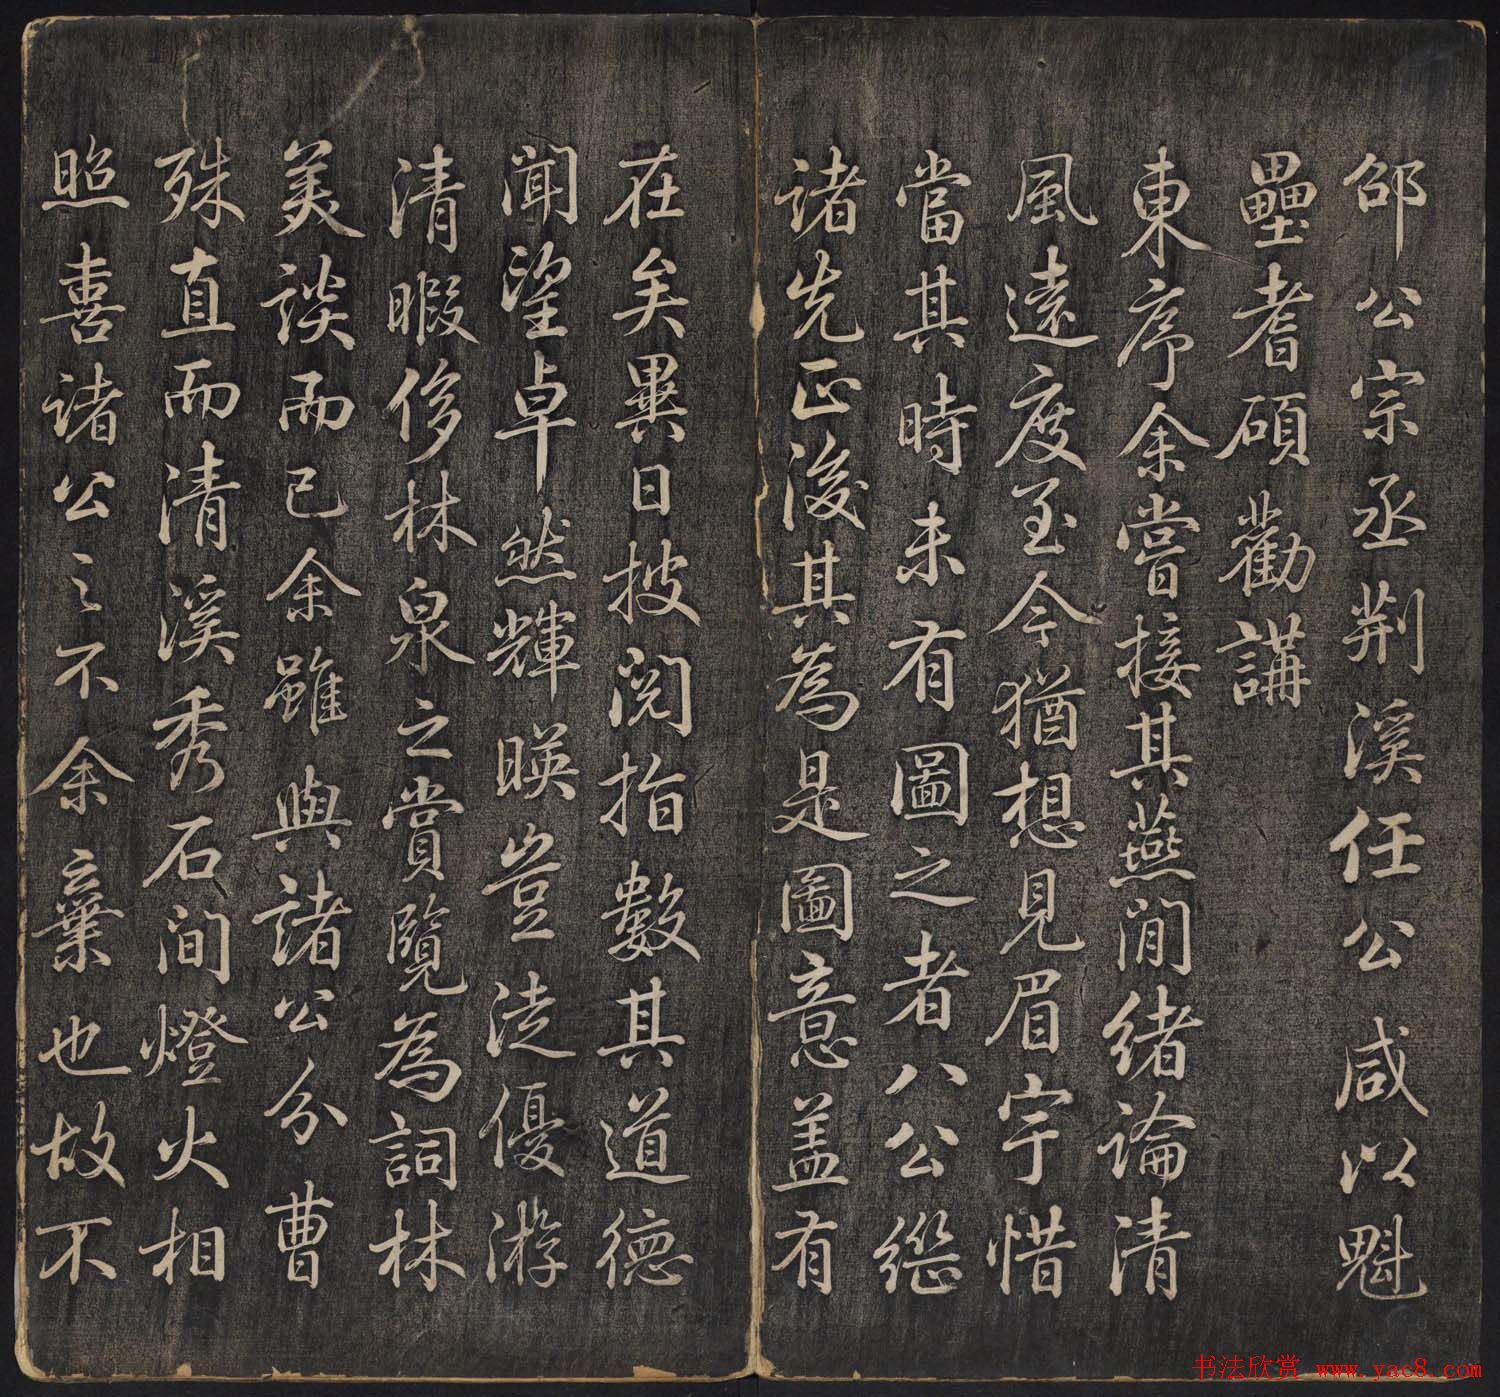 邵公宗丞荆溪任公咸以魁
壘耆碩勸講
東序余嘗接其燕閒緒論清
風遠度至今猶想見眉宇惜
當其時未有圖之者八公繼
諸先正後其為是圖意蓋有
在矣異日披閱指數其道德
聞望卓然輝暎豈徒優游
清暇侈林泉之賞覽為詞林
美談而已余雖與諸公分曹
殊直而清溪秀石間燈火相
照喜諸公之不余棄也故不
书法欣赏 www.yac8.com